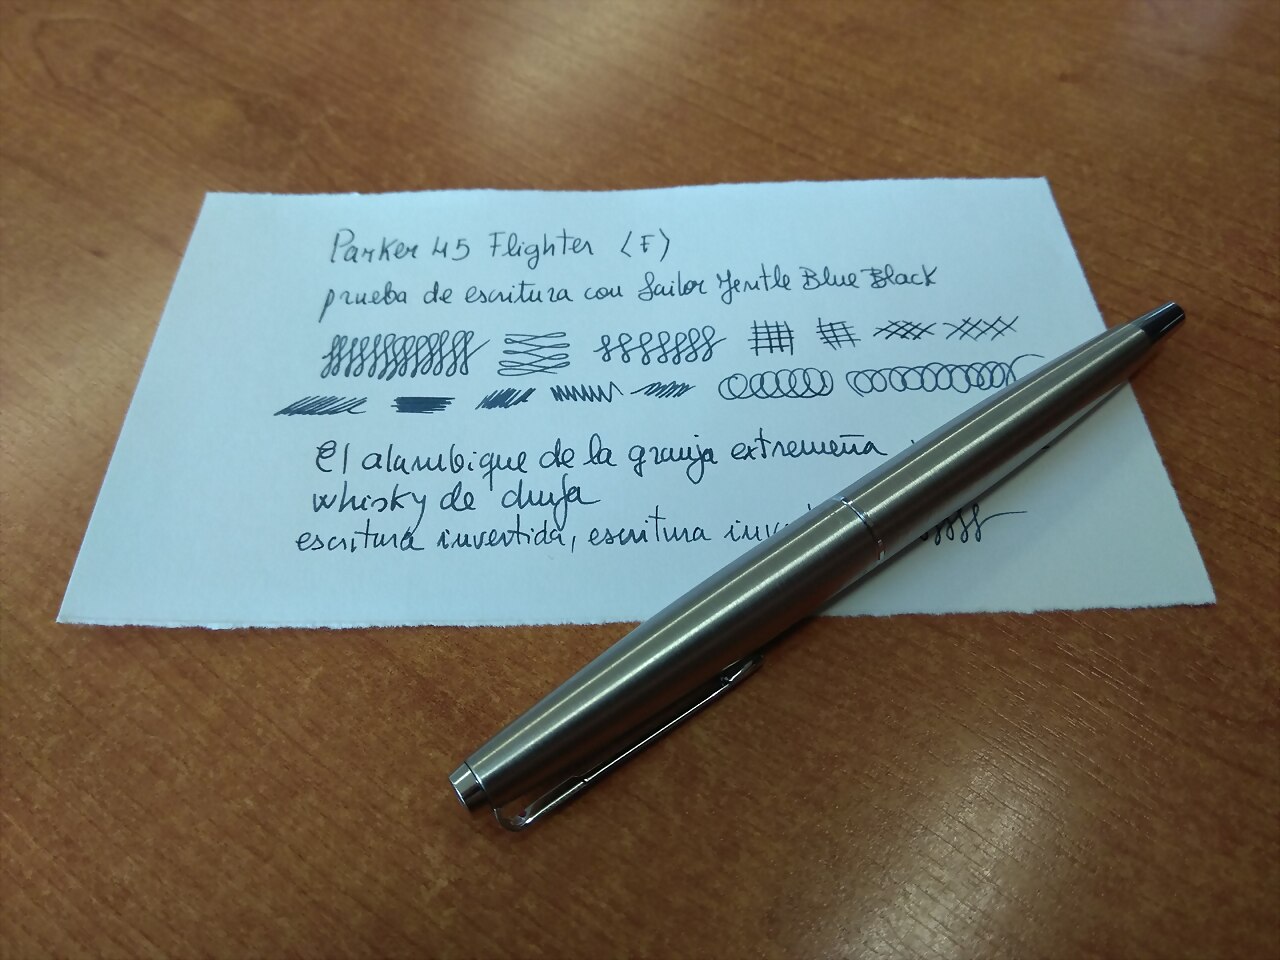 Parker 45 Flighter (F)
prueba de escritura con Sailor Jentle Blue Black
El alambique de la granja extremeña
whisky de chufa
escritura invertida, escritura inv